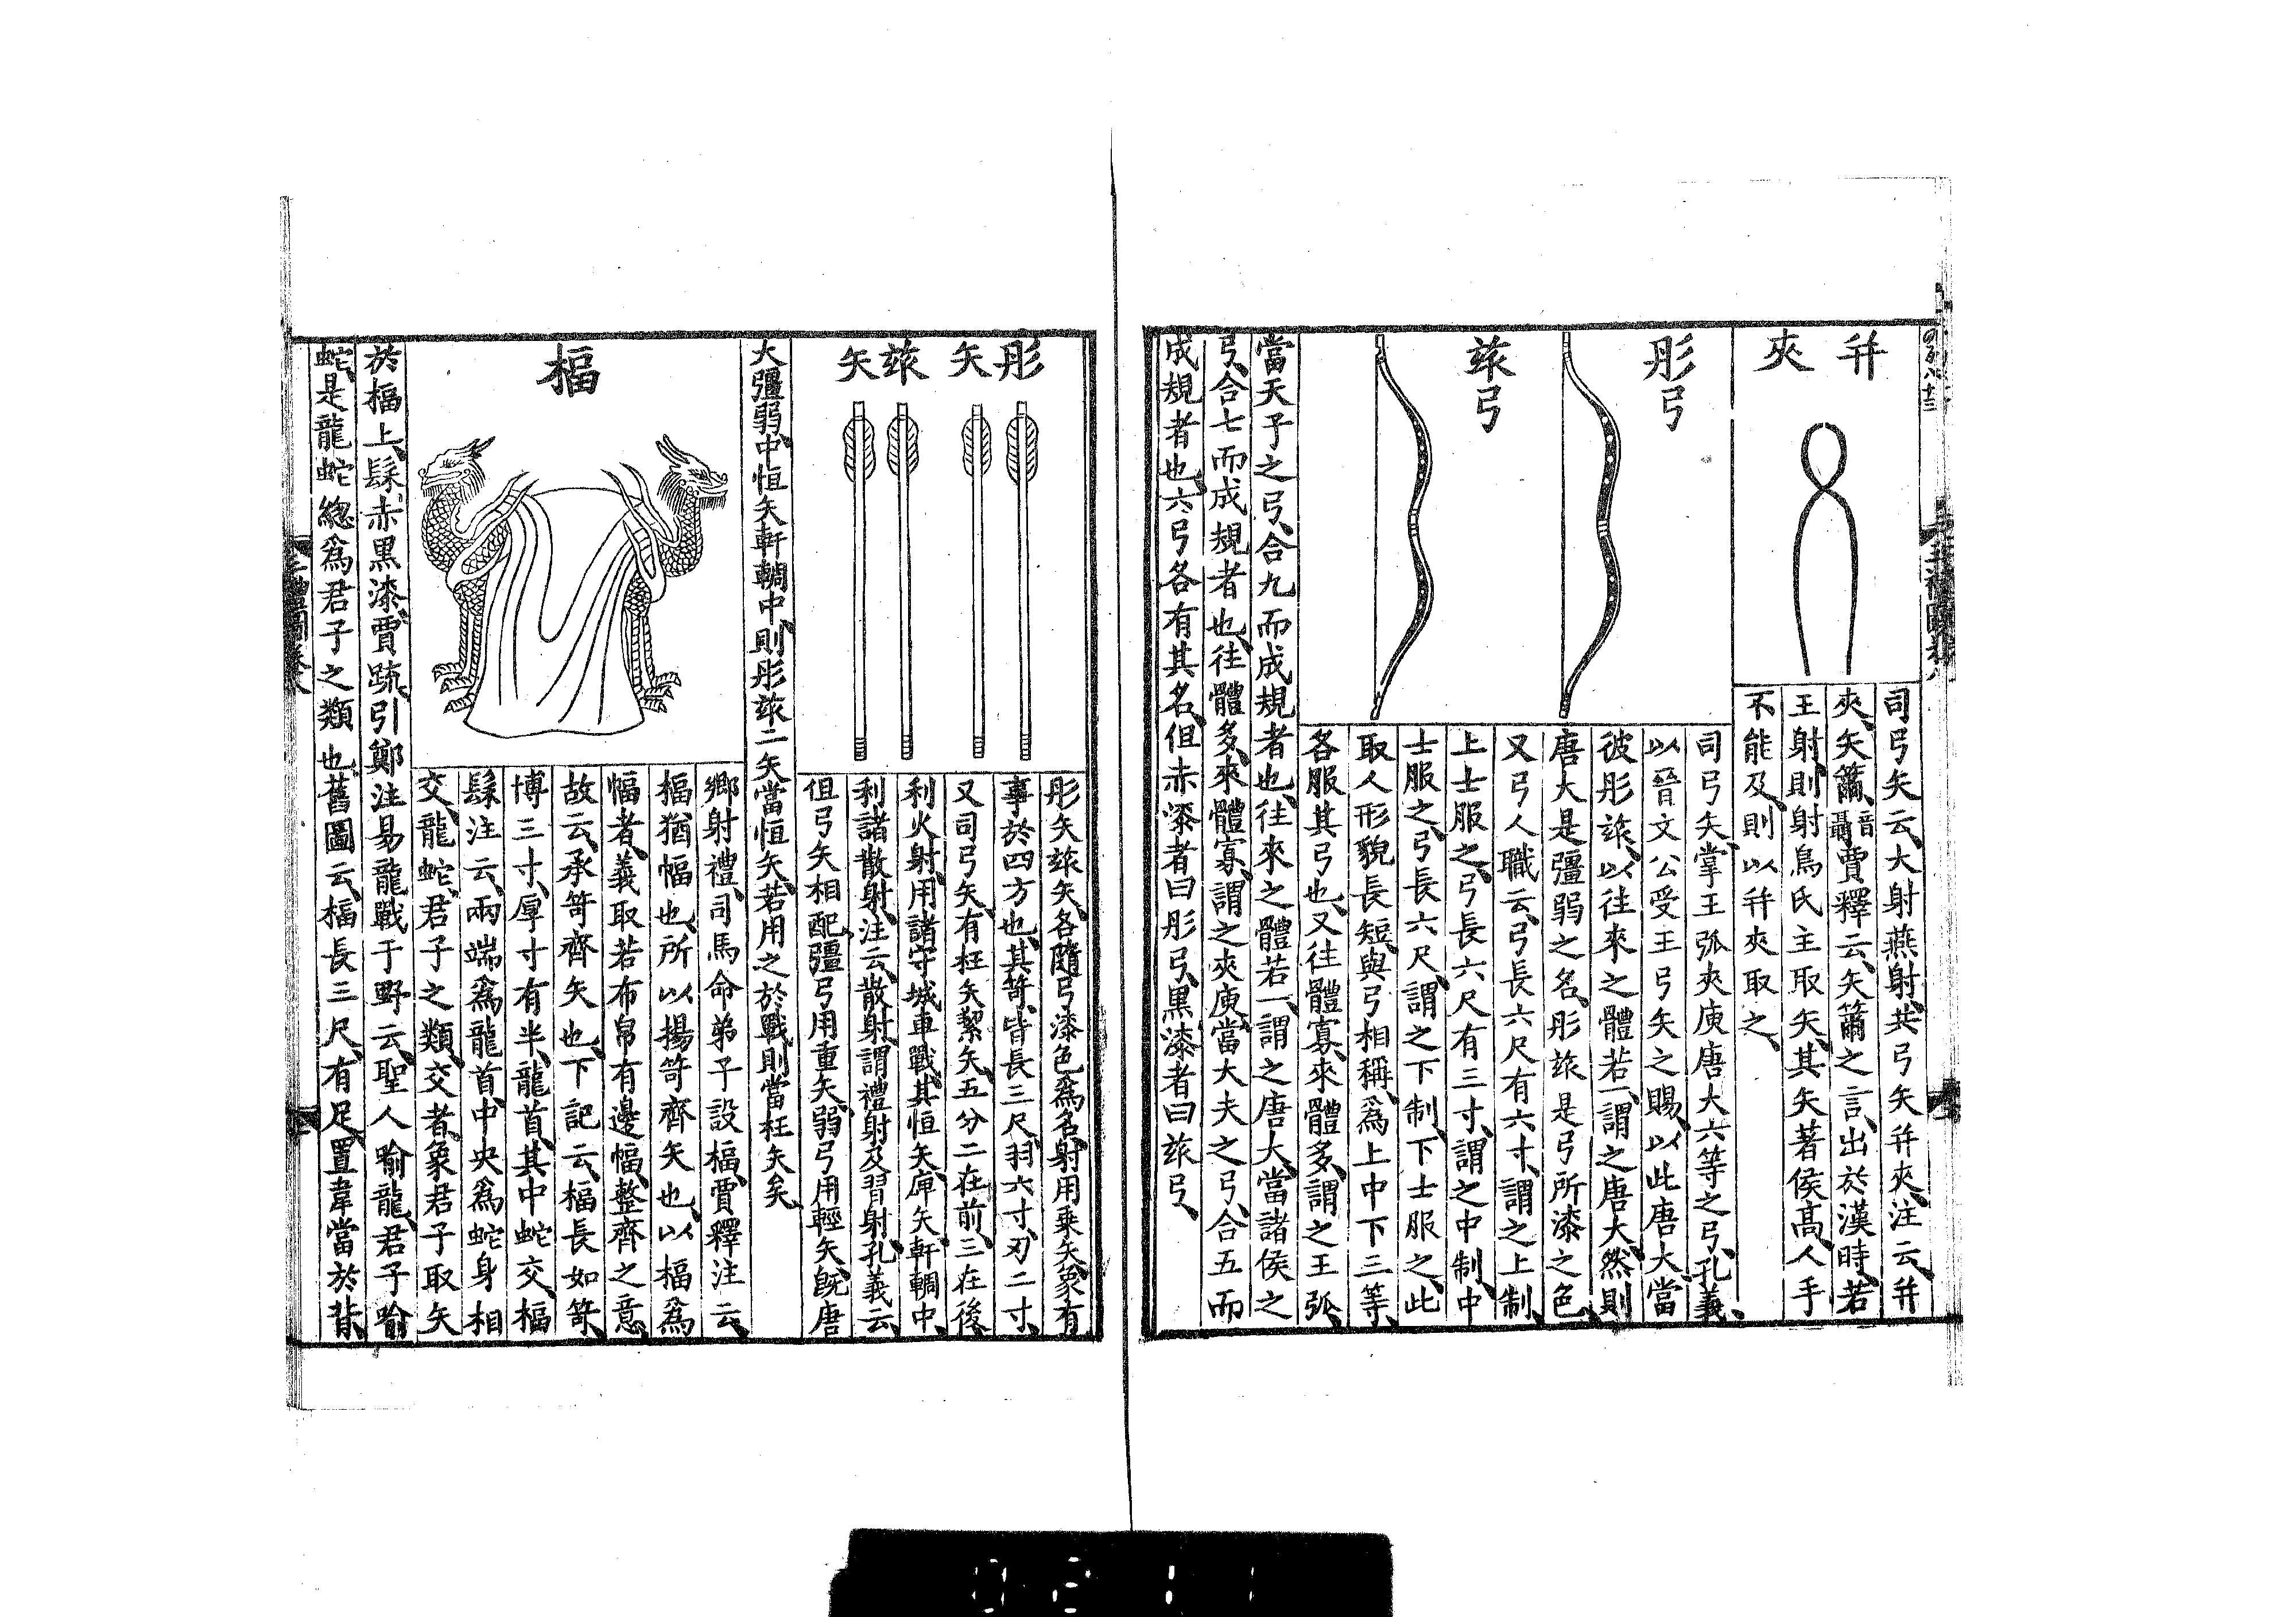 并夾
司弓矢云大射燕射共弓矢并夾注云并
夾矢籋音聶賈釋云矢籋之言出於漢時若
王射則射鳥氏主取矢其矢著侯高人手
不能及則以并夾取之
彤弓
玈弓
司弓矢掌王弧夾庾唐大六等之弓孔義
以晉文公受王弓矢之賜以此唐大當
彼彤玈以往來之體若一謂之唐大然則
唐大是彊弱之名彤玈是弓所漆之色
又弓人職云弓長六尺有六寸謂之上制
上士服之弓長六尺有三寸謂之中制中
士服之弓長六尺謂之下制下士服之此
取人形貌長短與弓相稱爲上中下三等
各服其弓也又往體寡來體多謂之王弧
當天子之弓合九而成規者也往來之體若一謂之唐大當諸侯之
弓合七而成規者也往體多來體寡謂之夾庾當大夫之弓合五而
成規者也六弓各有其名但赤漆者曰彤弓黑漆者曰玈弓
彤矢
玈矢
彤矢玈矢各隨弓漆色爲名射用乗矢象有
事於四方也其笴皆長三尺羽六寸刃二寸
又司弓矢有枉矢絜矢五分二在前三在後
利火射用諸守城車戰其恒矢庳矢軒輖中
利諸散射注云散射謂禮射及習射孔義云
但弓矢相配彊弓用重矢弱弓用輕矢旣唐
大彊弱中恒矢軒輖中則彤玈二矢當恒矢若用之於戰則當枉矢矣
楅
鄉射禮司馬命弟子設楅賈釋注云
楅猶幅也所以揚笴齊矢也以楅爲
幅者義取若布帛有邊幅整齊之意
故云承笴齊矢也下記云楅長如笴
博三寸厚寸有半龍首其中蛇交楅
髹注云兩端爲龍首中央爲蛇身相
交龍蛇君子之類交者象君子取矢
於楅上髹赤黒漆賈疏引鄭注易龍戰于野云聖人喻龍君子喻
蛇是龍蛇緫爲君子之類也舊圖云楅長三尺有足置韋當於背